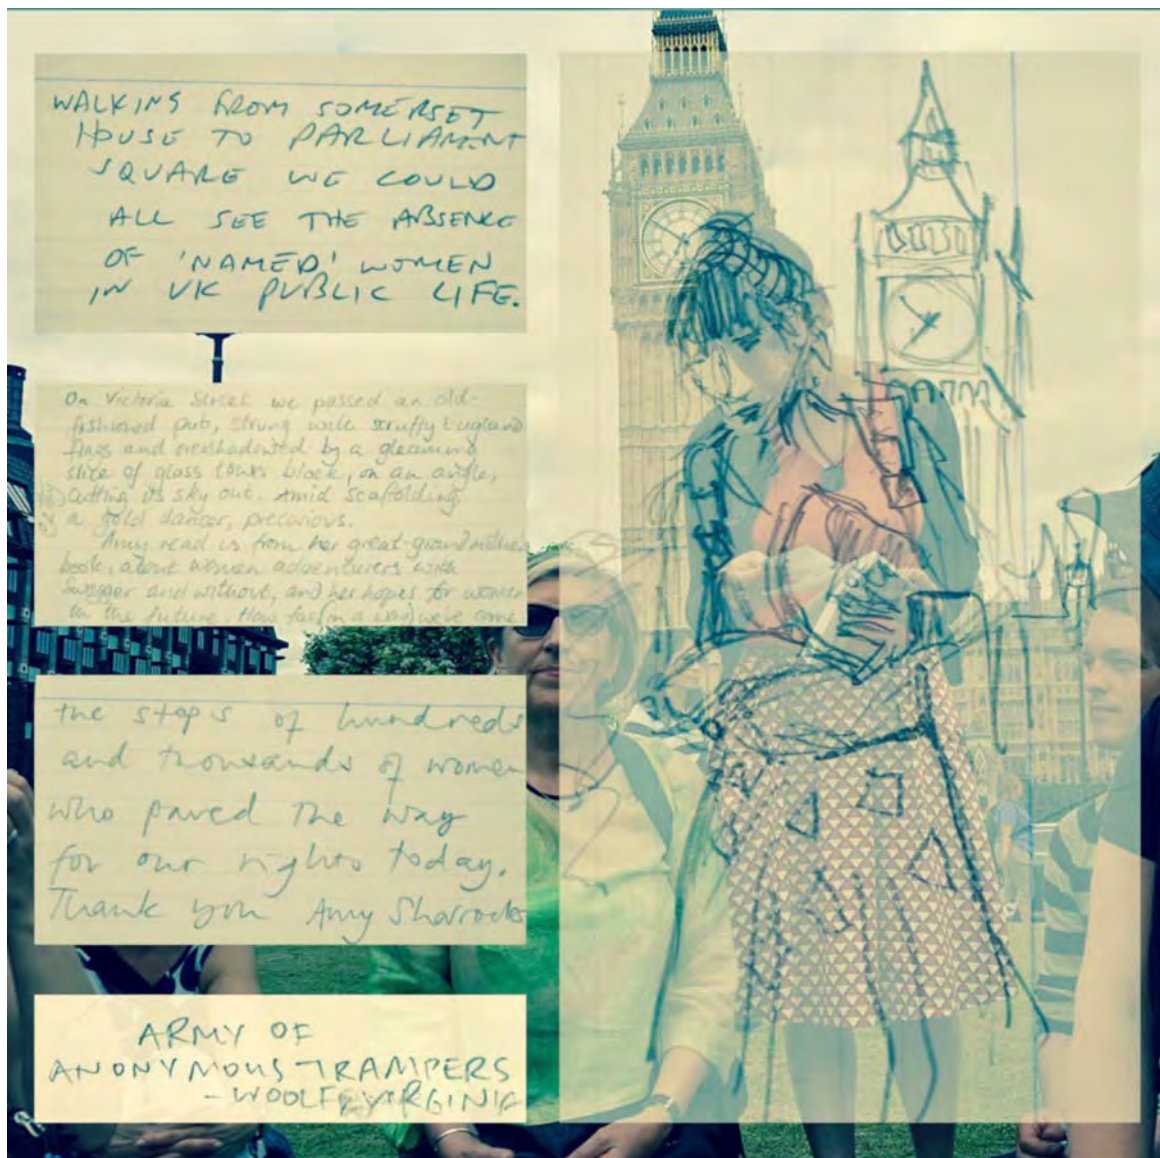 WALKING FROM SOMERSET
HOUSE TO PARLIAMENT
SQUARE WE COULD
ALL SEE THE ABSENCE
OF 'NAMED' WOMEN
IN UK PUBLIC LIFE.
On Victoria Street we passed an old-
fashioned pub, strung with scruffy England
flags and overshadowed by a gleaming
slice of glass tower block, on an angle,
cutting its sky out. Amid scaffolding
a gold dancer, precarious.
Amy read us from her great-grandmother's
book, about women adventurers with
swagger and without, and her hopes for women
in the future. How far (in a way) we've come
the steps of hundreds
and thousands of women
who paved the way
for our rights today.
Thank you Amy Sharrocks
ARMY OF
ANONYMOUS TRAMPERS
- WOOLF, VIRGINIA